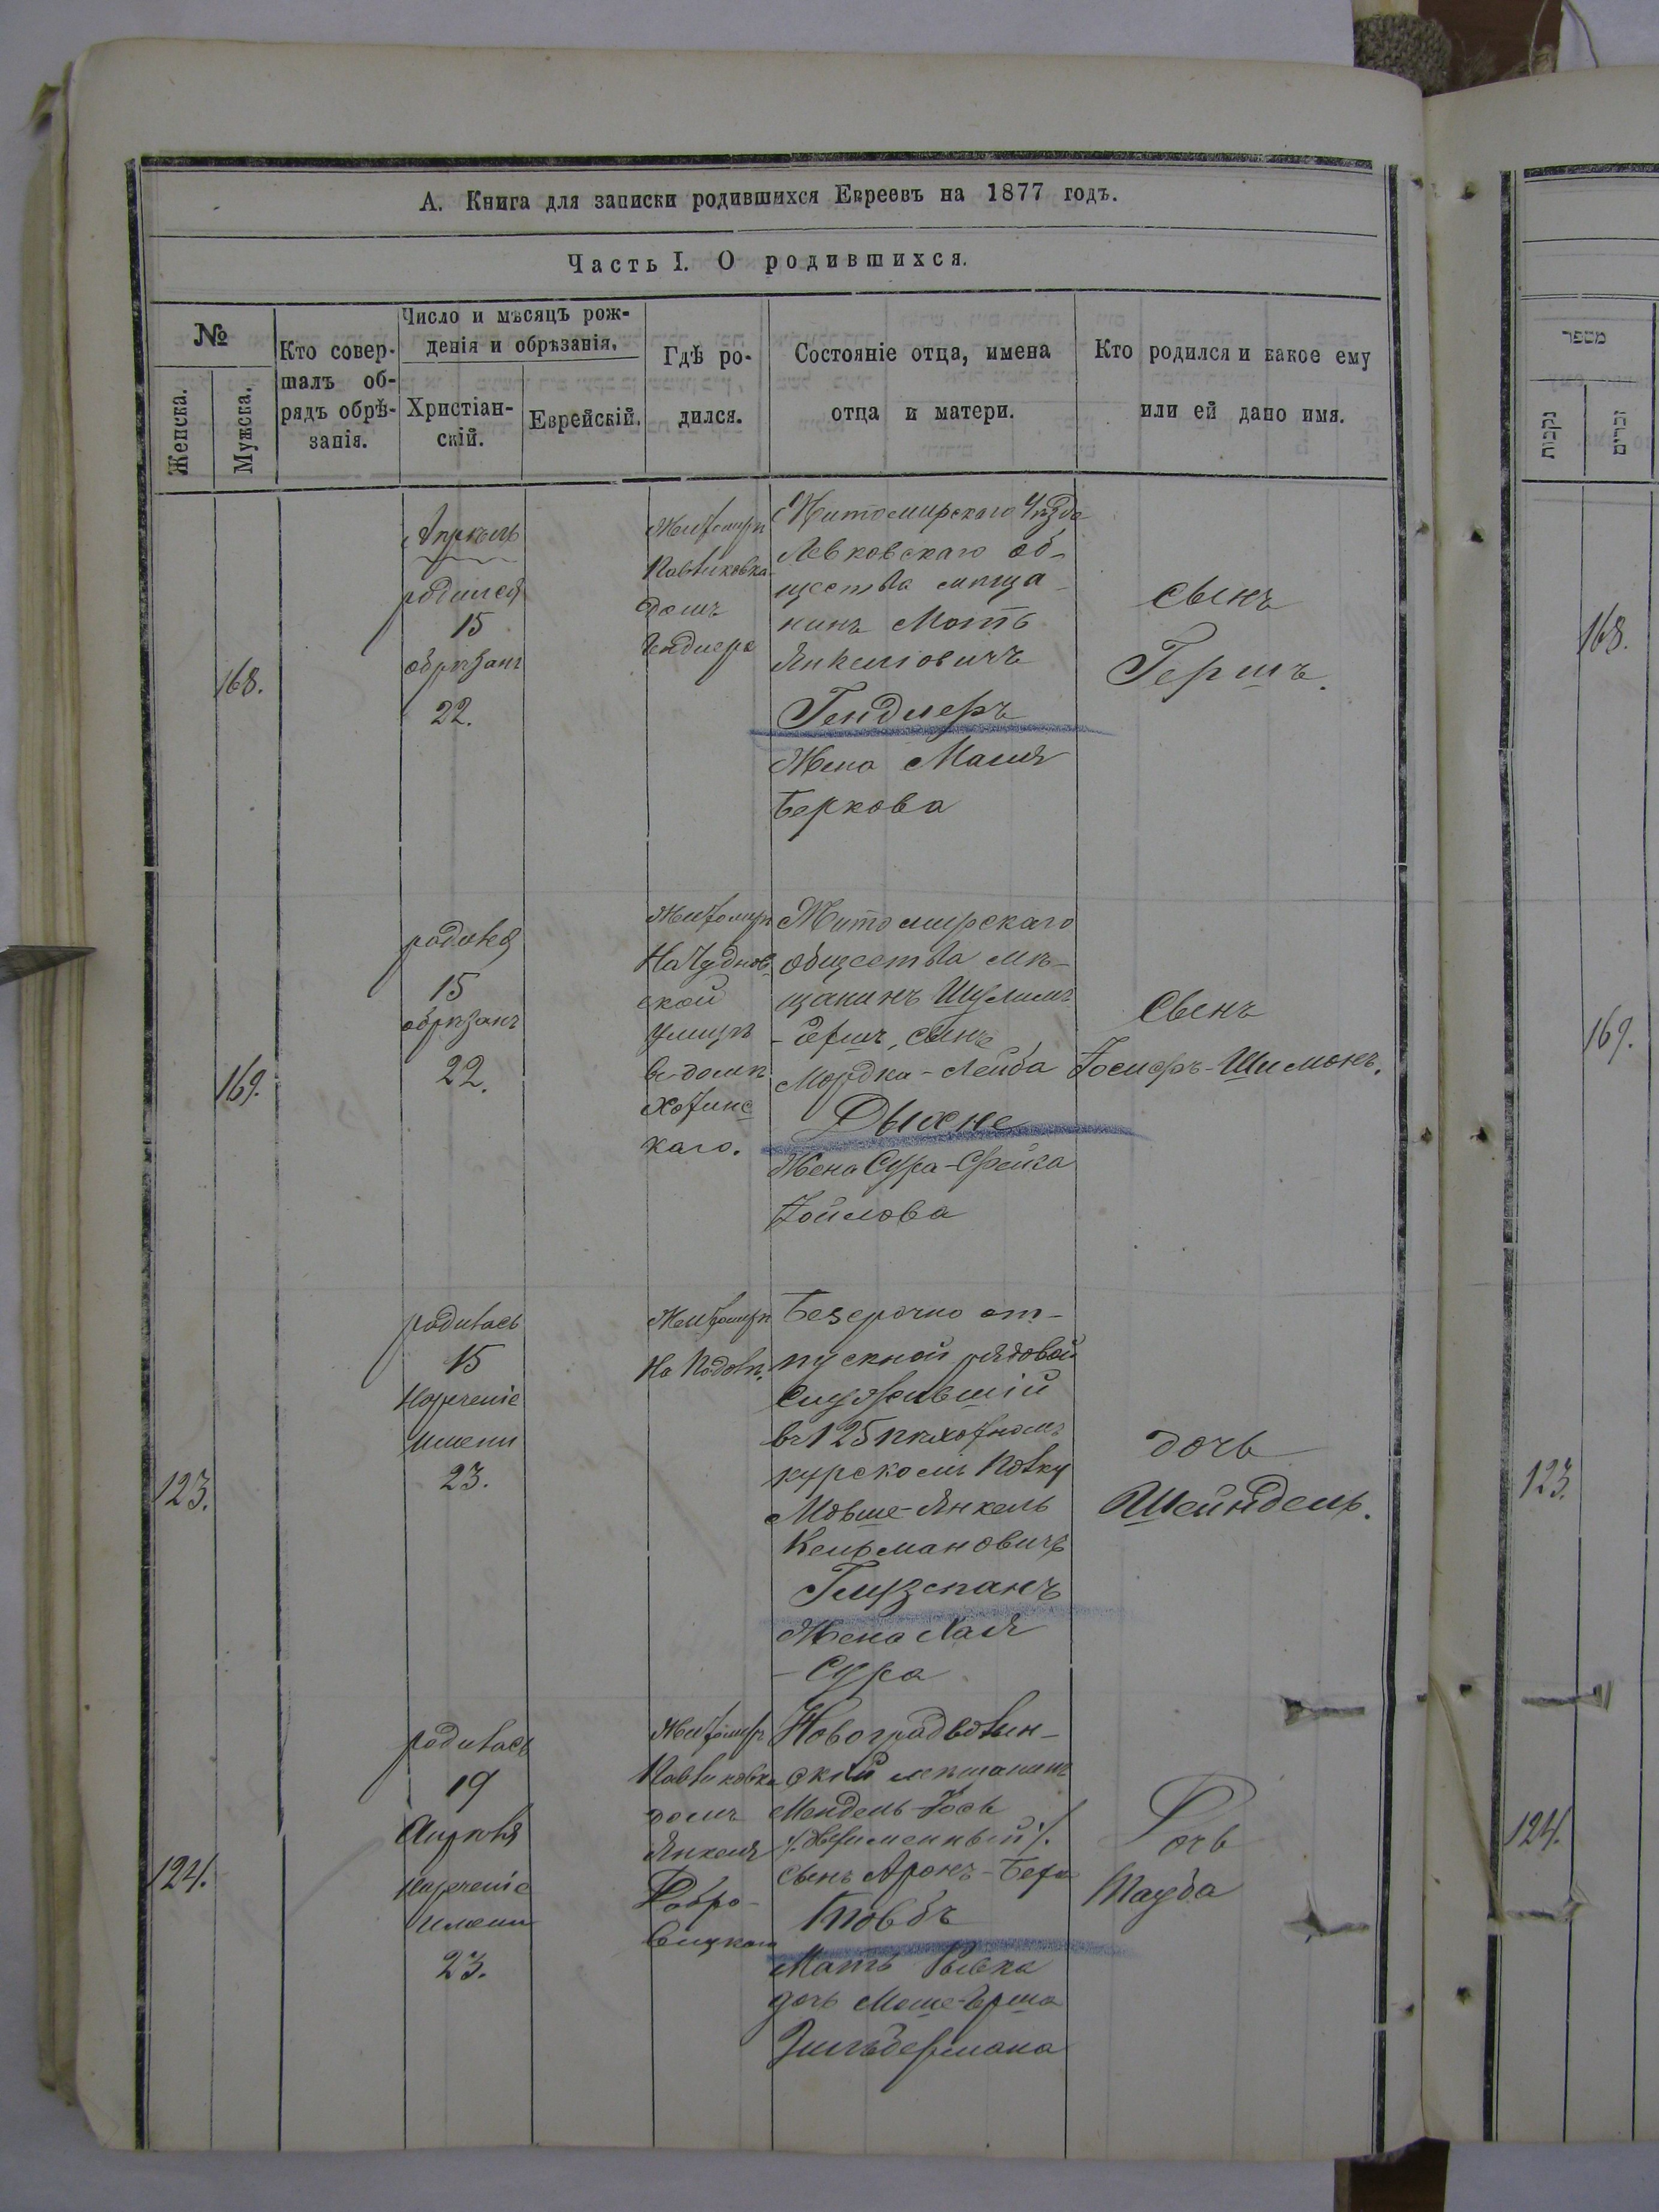 А. Книга для записки родившихся Евреевъ на 1877 годъ.
Часть I. О родившихся.
№
Женска.
Мужска.
Кто совер-
шалъ об-
рядъ обрѣ-
занія.
Число и мѣсяцъ рож-
денія и обрѣзанія.
Христіан-
скій.
Еврейскій.
Гдѣ ро-
дился.
Состояніе отца, имена
отца и матери.
Кто родился и какое ему
или ей дано имя.
168.
Апрѣль
родился
15
обрѣзанъ
22.
Житомиръ
Павликовка
домъ
Гендлера
Житомирскаго Уѣзда
Левковскаго об-
щества мѣща-
нинъ Моть
Янкелiовичъ
Гендлеръ
Жена Маля
Беркова
сынъ
Гершъ.
169.
родился
15
обрѣзанъ
22.
Житомиръ
На Чуднов-
ской
улицѣ
въ домѣ
Хотинс
каго.
Житомирскаго
общества мѣ-
щанинъ Шулимъ
- Гершъ, сынъ
Мордка-Лейба
Дыхне
Жена Сура-Фейга
Іойлова
Сынъ
Іосифъ-Шимонъ.
123.
родилась
15
Нареченіе
имени
23.
Житомиръ
На Подолѣ.
Безсрочно от-
пускной рядовой
служившій
въ 125 пѣхотномъ
курскомъ полку
Мовше-Янкель
Кельмановичъ
Глузманъ
Жена Хая
- Сура
дочь
Шейндель.
124.
родилась
19
Апрѣля
Нареченіе
имени
23.
Житомиръ
Павликовка
домъ
Янкеля
Добро-
вицкаго
Новоградволын-
скій мѣщанинъ
Мендель-Іось
сынъ Аронъ-Бера
Мать Ривка
дочь Моше-Герша
Зильбермана
Дочь
Тауба
מספר
נקבות
זכרים
168.
169.
123.
124.